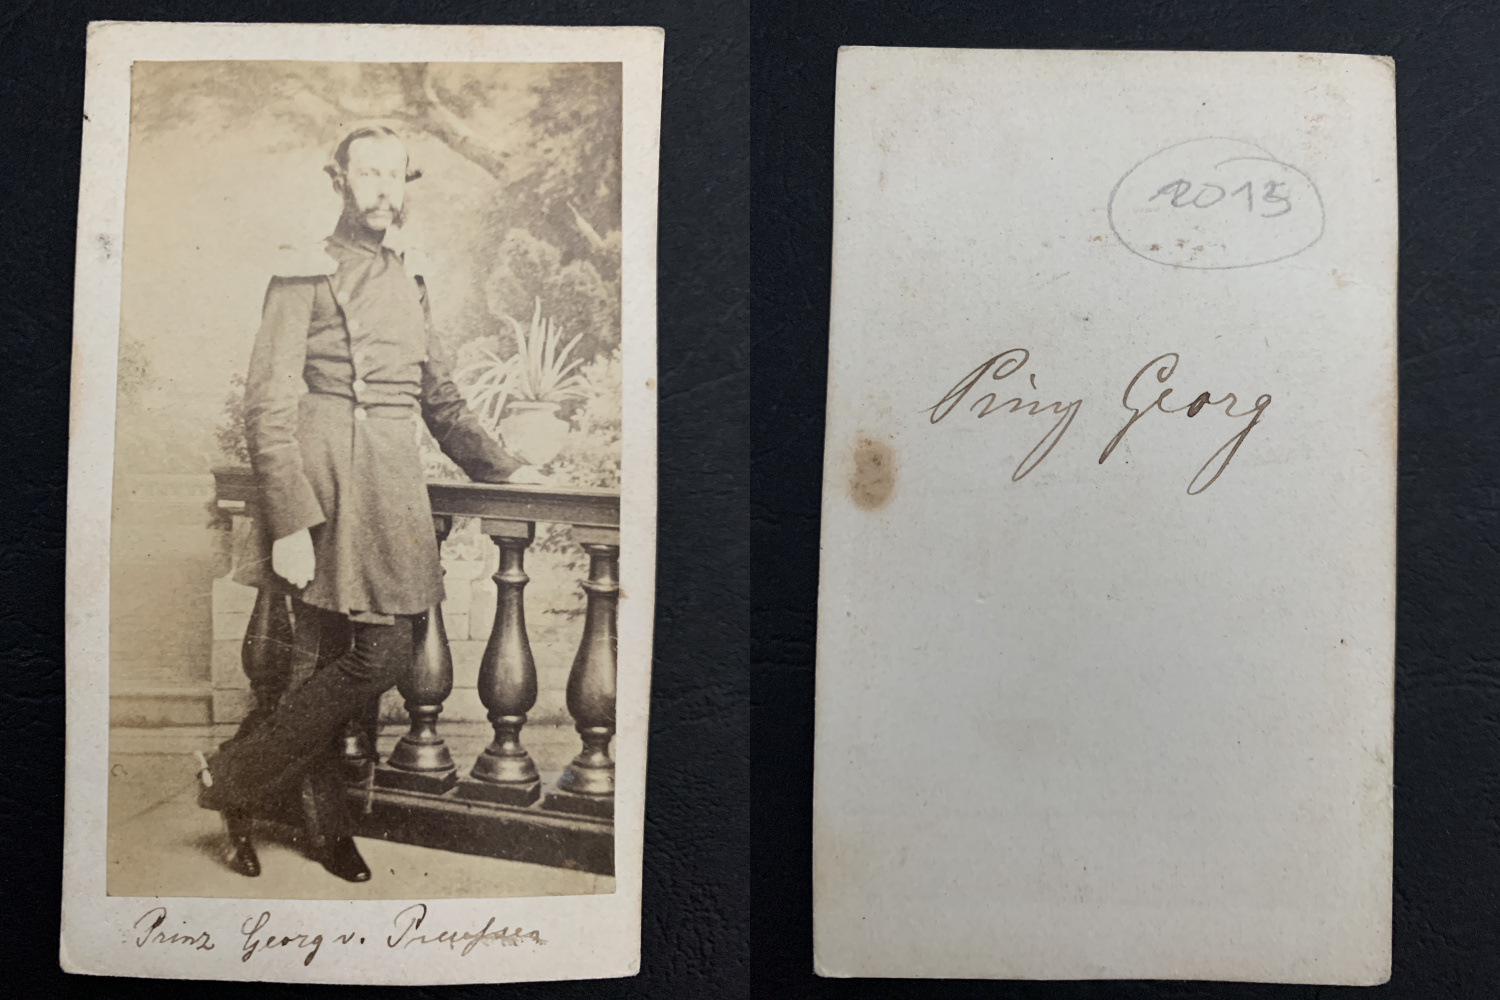 Prinz Georg v. Preußen
2015
Prinz Georg